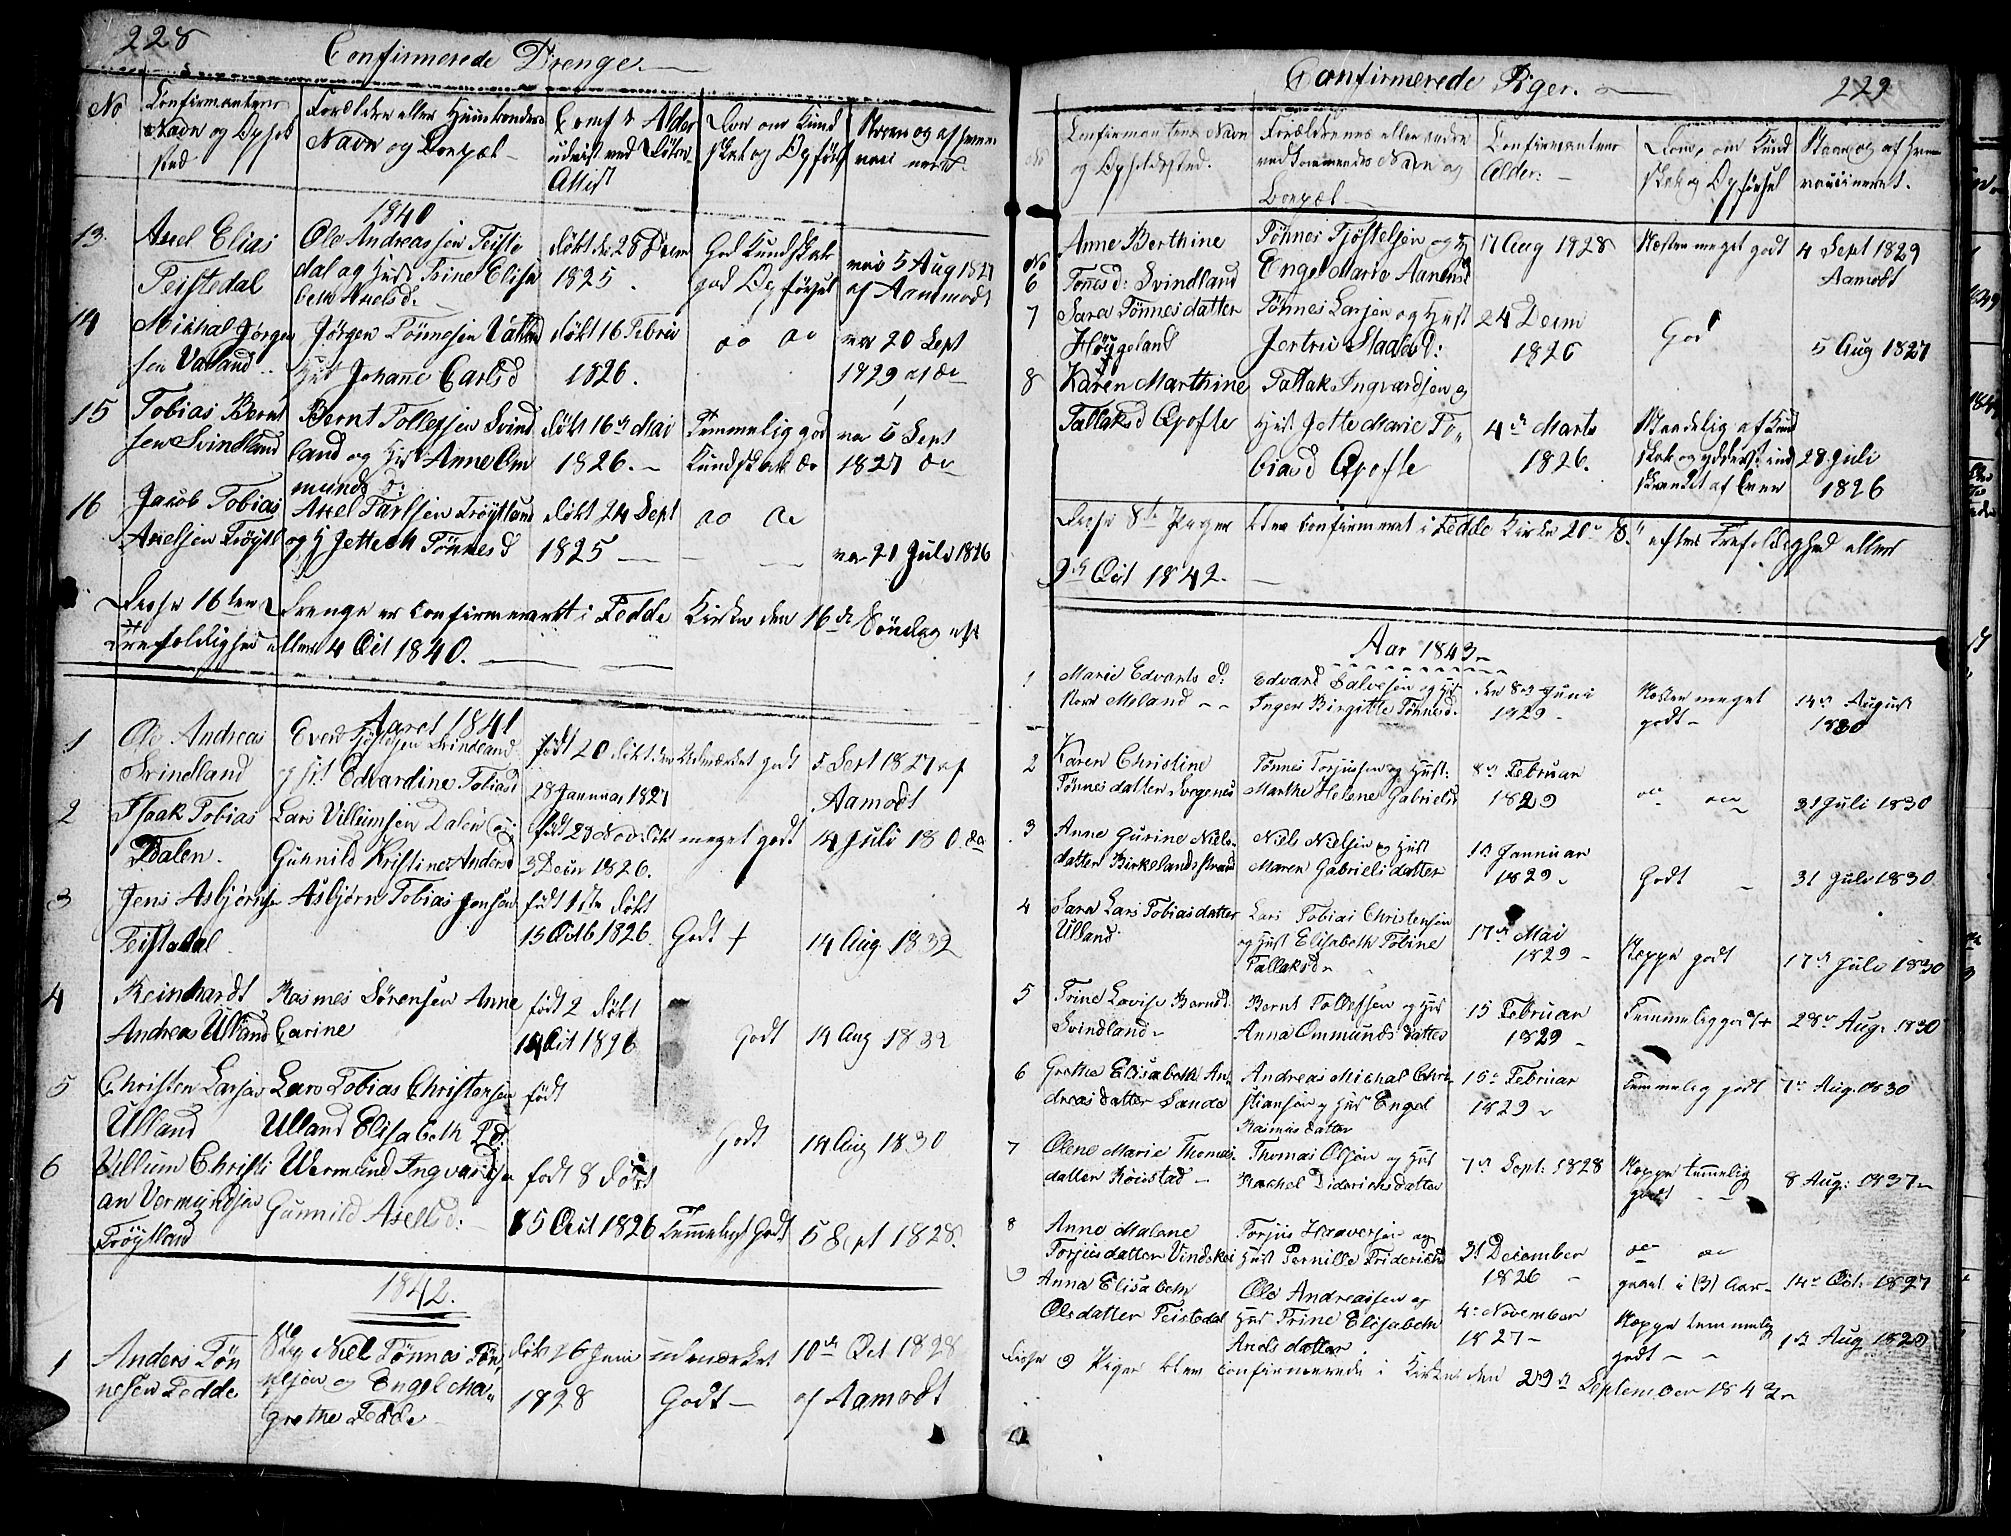 228
Confirmerede Drenge.
No
Confirmantens
Navn og Ophold
sted
Forældre eller Huusbonders
Navn og Boepæl
Conf: Alder
udviist ved Døbe
Attest
Dom om Kund
skab og Opførsel
Naar og af hvem
vaccineret.
1840
13.
Axel Elias
Feistedal
Ole Andreassen Feiste
dal og Hust Trine Elisa
beth Axelsd.
døbt d. 28 Decm
1825.
God Kundskab
god Opførsel
vac 5 Aug 1827
af Aammodt
14
Michal Jørgen
sen Vatland
Jørgen Tønnesen Vatland
Hust Johanne Carlsd
døbt 16 Febru
1826.
do do
vac 20 Sept
1829 af do
15
Tobias Bernt
sen Svindland
Bernt Tollefsen Svind
land og Hust Anne Om
mundsd:
døbt 16de Mai
1826.
Temmelig god
Kundskab do
vac 5 Sept
1827 do
16
Jacob Tobias
Axelsen Frøytl
Axel Tarlsen Frøytland
og H Jetteth Tønnesd
døbt 24 Sept
1825
do do
vac 21 Juli 1826
Disse 16ten Drenge er confirmeret i Fedde Kirke den 16de Søndag eft
Trefoldighed eller 4 Oct 1840.
Aaret 1841
1
Ole Andreas
Svindland
Even Tjøstelsen Svindland
og Hst Edvardine Tobiasd
født 20 døbt den
28 Januar 1827
Udmærket godt
5 Sept 1827 af
Aamodt
2
Isaak Tobias
Dalen.
Lars Villumsen Dalen og
Gunnild Kristine Andersd
født 29 Nov: døbt
3 Decm 1826.
meget godt
14 Juli 18 0. do
3
Jens Asbjørns
Feistedal
Asbjørn Tobias Jensen
født 1ste døbt
15 Octb 1826.
Godt +
14 Aug 1832
4
Reinhardt
Andreas Ulland
Rasmes Sørensen Anne
Carine
født 2 døbt
14 Oct 1826
Godt
14 Aug 1832
5
Christen Larsen
Ulland
Lars Tobias Christensen
Ulland Elisabeth T.d:
født
Godt
14 Aug 1830
6
Villum Christi
an Vermundsen
Frøytland
Wermund Ingvardsen
Gunnild Axelsd:
født 8 døbt
15 Octt 1826
Temmeligt Godt
5 Sept 1828.
1842.
1
Anders Tøn
nesen Fedde
Niel Tønnes Tøn
nesen og Engel Ma
grethe Fedde
døb 26 Juni
1828
udmærket
Godt
10de Oct 1828
af Aamodt
Confirmerede Piger.
229
No
Confirmantens Navn
og Opholdssted.
Forældrenes eller andre
vedkommendes Navn og
Boepæl
Confirmantens
Alder:
Dom, om Kund
skab og Opførsel
Naar og af hvem
vaccineret.
No
6
Anne Berthine
Tønesd: Svindland
Tønnes Tjøstelsen og H
Engel Marie Aanensd
17 Aug 1828
Næsten meget godt
4 Sept 1829
Aamodt
7
Sara Tønnesdatter
Høygeland
Tønnes Larsen og Hust
Jertru Stadsd:
24 Decm
1826
God
5 Aug 1827
8
Karen Marthine
Tallaksd Opofte
Tallak Ingvardsen og
Hust Jette Marie To
biasd Opofte
4de Marts
1826.
Maadelig af Kund
skab og yderst ind
skrænket af Evner
28 Juli
1826
Disse 8te Piger blev Confirmeret i Fedde Kirke 20de S. efter Trefoldighed eller
9de Oct 1842.
Aar 1843
1
Marie Edvarts d:
Nord Meland
Edvard Salvesen og Hst
Inger Birgitte Tønnesd.
den 8de Juni
1829
Næsten meget
godt
14de August
1830
2
Karen Christine
Tønnesdatter Svegenes
Tønnes Torjussen og Hust:
Marthe Helene Gabrielsd
8de Februar
1829
do do
31 Juli 1830
3
Anne Gurine Niels
datter Birkelandsstrand
Niels Nielsen og Hust
Maren Gabrielsdatter
1ste Januar
1829
Godt
31 Juli 1830
4
Sara Lars Tobiasdatter
Ulland
Lars Tobias Christensen
og Hust Elisabeth Tobine
Tallaksd
17de Mai
1829
Neppe godt
17de Juli 1830
5
Trine Lovise Berndsd.
Svindland
Bernt Tollefsen og Hust
Anna Ommundsdatter
15 Februar
1829
Temmelig godt +
28de Aug. 1830
6
Grethe Elisabeth An
dreasdatter Sande
Andreas Michal Chri
stiansen og Hust Engel
Rasmusdatter
15de Februar
1829
Temmelig godt
7de Aug. 1830
7
Olene Marie Thomas
datter Røiestad
Thomas Olsen og Hust
Rachel Diderichsdatter
7de Sept: 1828
Neppe temmelig
godt
8 Aug: 1837
8
Anne Malene
Torjusdatter Vindskei
Torjus Haaversen og
Hust Pernille Fridrichsd
31 December
1826
do do
gaaet i (3) Aar
14de Oct: 1827
9
Anna Elisabeth
Olsdatter Feistedal
Ole Andreassen og
Hust Trine Elisabeth
Andsdatter
4de November
1827
Neppe temmelig
godt
1ste Aug 1829
Disse 9 Piger blev confirmerede i Kirke den 29de September 1843